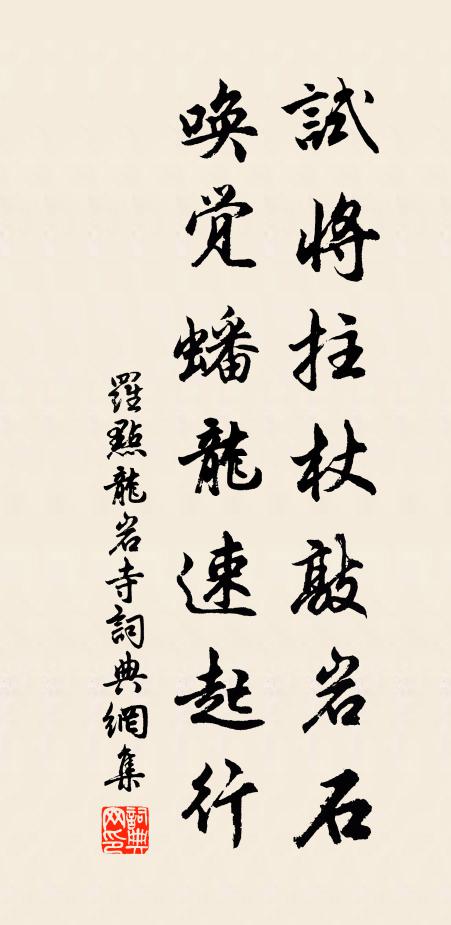 試將拄杖敲岩石
喚覺蟠龍速起行
羅點龍岩寺詞典網集
詞典网印